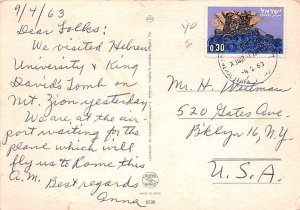 9/4/63
Dear Folks:
We visited Hebrew
University & King
David's Tomb on
Mt. Zion yesterday.
We are at the air-
port waiting for the
plane which will
fly us to Rome this
A.M. Best regards
Anne
40
ישראל
0.30
-4.63
Mr. H. Weitman
520 Gates Ave.
B'klyn 16, N.Y.
U.S.A.
6338